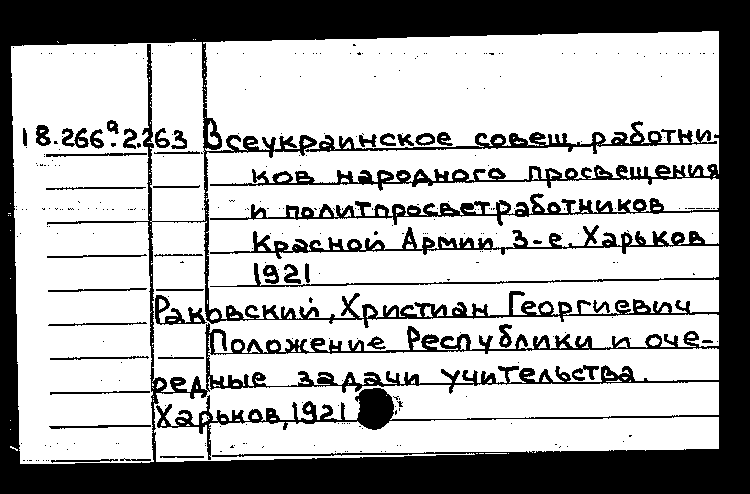 18.266ª.2.263 Всеукраинское совещ. работни-
ков народного просвещения
и политпросветработников
Красной Армии, 3-е. Харьков
1921
Раковский, Христиан Георгиевич
Положение Республики и оче-
редные задачи учительства.
Харьков, 1921